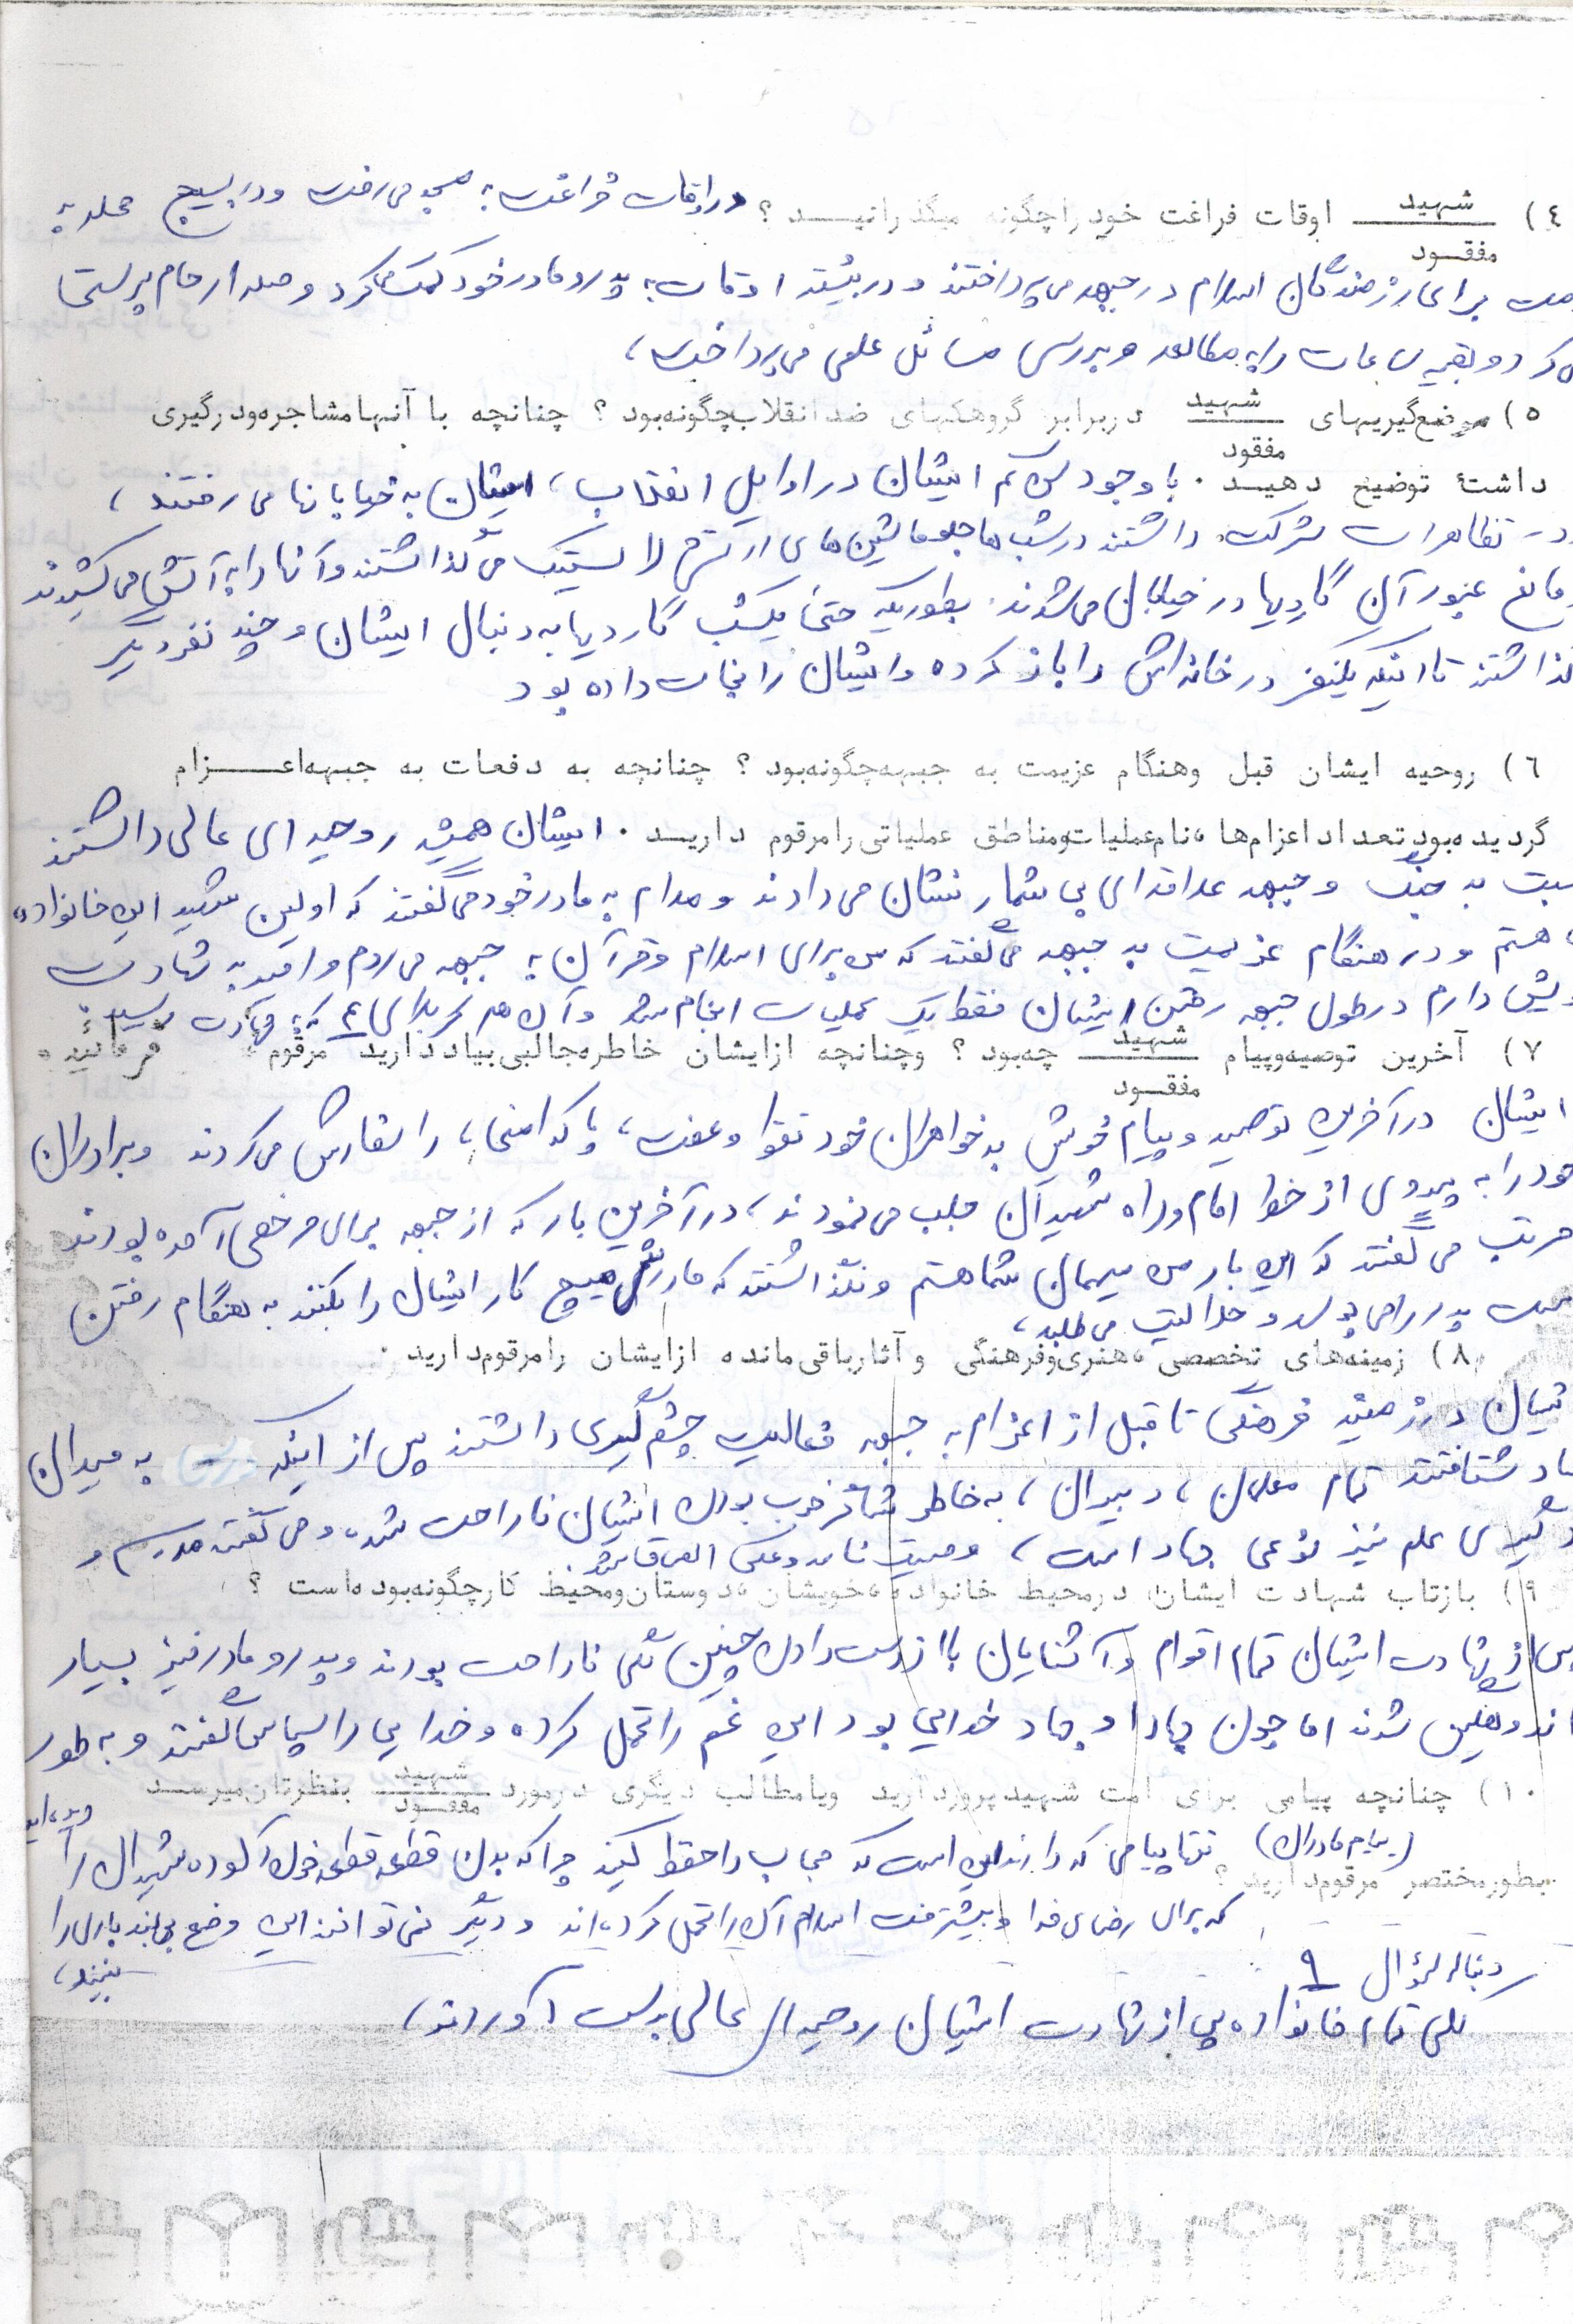 ٤) شهید / مفقود اوقات فراغت خود را چگونه میگذرانید ؟ در اوقات فراغت به مسجد می رفت و در بسیج محله به
برای رزمندگان اسلام در جبهه می پرداختند و در بیشتر اوقات به پدر و مادر خود کمک می کرد و صله ارحام
و بقیه ی ساعات را به مطالعه و بررسی مسائل علمی می پرداخت،
٥) موضع گیریهای شهید / مفقود در برابر گروهکهای ضد انقلاب چگونه بود ؟ چنانچه با آنها مشاجره و درگیری
داشتهٔ توضیح دهید . با وجود سن کم ایشان در اوایل انقلاب، ایشان به خیابانها می رفتند ،
در تظاهرات شرکت داشتند در شب ها جلو ماشین های ارتش لاستیک می گذاشتند و آنها را به آتش می کشیدند
مانع عبور آن گاردیها در خیابان می شدند. بطوریکه حتی یکشب گاردیها به دنبال ایشان و چند نفر دیگر
گذاشتند تا اینکه یکنفر در خانه اش را باز کرده و ایشان را نجات داده بود
٦) روحیه ایشان قبل وهنگام عزیمت به جبهه چگونه بود ؟ چنانچه به دفعات به جبهه اعزام
گردیده بود تعداد اعزام ها ، نام عملیات و مناطق عملیاتی را مرقوم دارید . ایشان همیشه روحیه ای عالی داشتند
به جنگ و جبهه علاقه ای بی شمار نشان می دادند و مدام به مادر خود می گفتند که اولین شهید این خانواده
هستم و در هنگام عزیمت به جبهه می گفتند که من برای اسلام و قرآن به جبهه می روم و امید به شهادت
خویش دارم در طول جبهه رفتن ایشان فقط یک عملیات انجام شد و آن هم کربلای ٤ که به شهادت رسید.
٧) آخرین توصیه و پیام شهید / مفقود چه بود ؟ و چنانچه از ایشان خاطره جالبی بیاد دارید مرقوم فرمائید .
ایشان در آخرین توصیه و پیام خویش به خواهران خود تقوا و عفت، پاکدامنی، را سفارش می کردند و برادران
خود را به پیروی از خط امام و راه شهیدان جلب می نمودند، در آخرین بار که از جبهه برای مرخصی آمده بودند
مرتب می گفتند که این بار من میهمان شما هستم و نگذاشتند که مادرش هیچ کار ایشان را بکنند به هنگام رفتن
پدر را می بوسد و حلالیت می طلبد،
٨) زمینه های تخصصی ، هنری و فرهنگی و آثار باقی مانده از ایشان را مرقوم دارید .
ایشان در زمینه فرهنگی تا قبل از اعزام به جبهه فعالیت چشم گیری داشتند پس از اینکه به میدان
شتافتند تمام معلمان ، دبیران ، به خاطر شاگرد خوب بودن ایشان ناراحت شده و می گفتند مدرسه و
گیری علم نیز نوعی جهاد است ، وصیت نامه و عکس
٩) بازتاب شهادت ایشان در محیط خانواده ، خویشان ، دوستان و محیط کار چگونه بوده است ؟
پس از شهادت ایشان تمام اقوام و آشنایان با از دست دادن چنین گلی ناراحت بودند و پدر و مادر نیز بسیار
اندوهگین شدند اما چون جهاد او جهاد خدایی بود این غم را تحمل کرده و خدایی را سپاس گفتند و به طور
١٠) چنانچه پیامی برای امت شهید پرور دارید و یا مطالب دیگری در مورد شهید / مفقود بنظرتان میرسد
(پیام مادرا‌ن) تنها پیامی که دارند این است که حجاب را حفظ کنید چرا که بدن قطعه قطعه خون آلوده شهیدان را دیده اید
بطور مختصر مرقوم دارید ؟
که برای رضای خدا و پیشرفت اسلام آن را تحمل کرده اند و دیگر نمی توانند این وضع را
ببینند،
دنباله سؤال ٩
کلی تمام خانواده پس از شهادت ایشان روحیه ای عالی بدست آوردند،